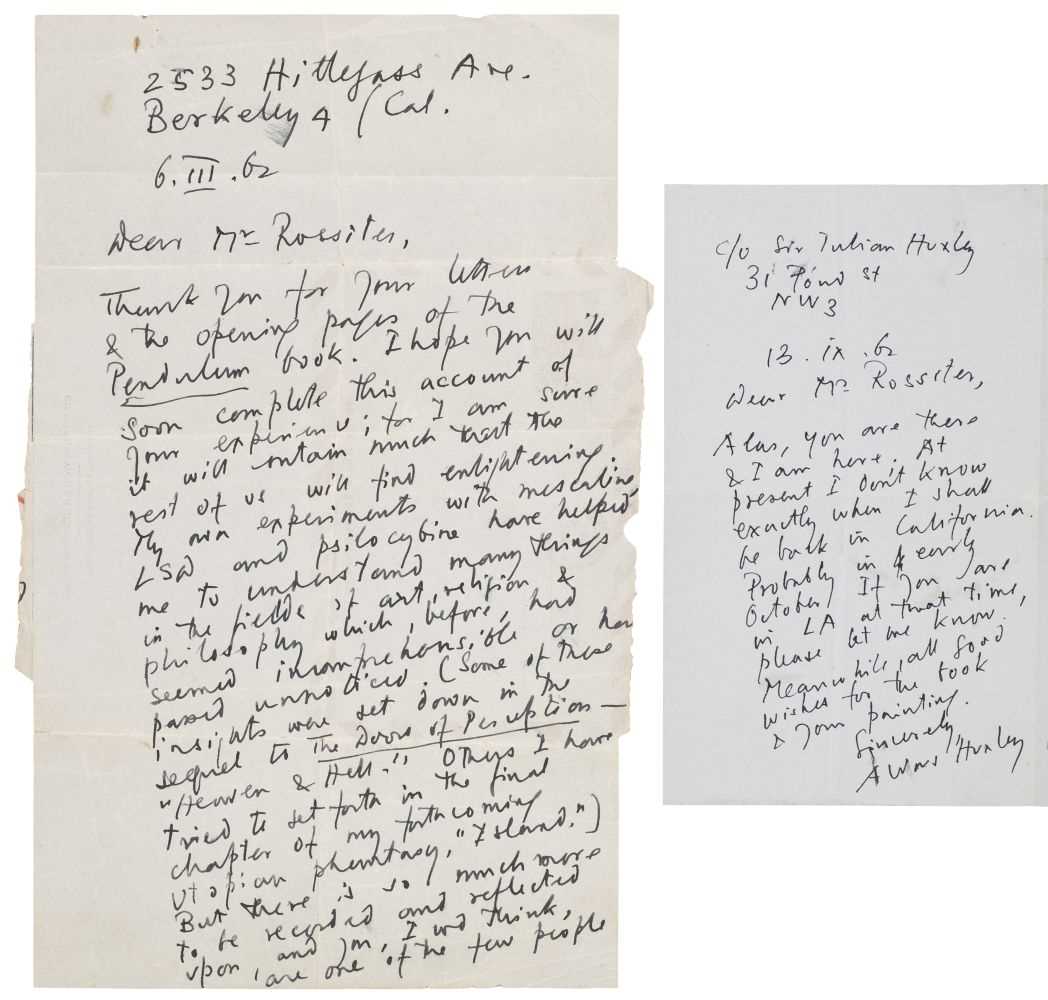 2533 Hillegass Ave.
Berkeley 4 / Cal.
6.III.62
Dear Mr Rossiter,
Thank you for your letters
& the opening pages of the
Pendulum book. I hope you will
soon complete this account of
your experiences; for I am sure
it will contain much that the
rest of us will find enlightening.
My own experiments with mescaline,
LSD and psilocybine have helped
me to understand many things
in the fields of art, religion &
philosophy which, before, had
seemed incomprehensible or had
passed unnoticed. (Some of these
insights were set down in the
sequel to The Doors of Perception —
"Heaven & Hell." Others I have
tried to set forth in the final
chapter of my forthcoming
utopian phantasy, "Island.")
But there is so much more
to be recorded and reflected
upon, and you, I wd think,
are one of the few people
c/o Sir Julian Huxley
31 Pond St
NW3
13.ix.62
Dear Mr Rossiter,
Alas, you are there
& I am here. At
present I don't know
exactly when I shall
be back in California.
Probably in early
October. If you are
in LA at that time,
please let me know.
Meanwhile, all good
wishes for the book
& your painting.
Sincerely,
Aldous Huxley